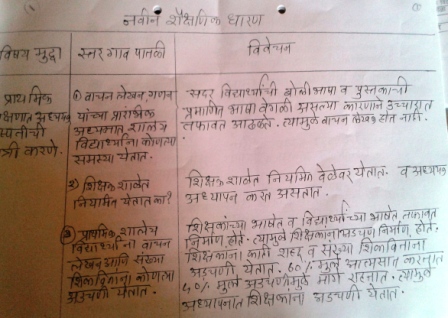 नवीन शैक्षणिक धोरण
विषय मुद्दा
स्तर गाव पातळी
विवेचन
प्राथमिक
अध्यय
स्तराची
करणे.
① वाचन लेखन गणन
यांच्या प्रारंभिक
शाळेत
विद्यार्थ्यांना कोणत्या
समस्या येतात.
सदर विद्यार्थ्यांची बोलीभाषा व पुस्तकाची
प्रमाणित भाषा वेगळी असल्या कारणाने उच्चारात
तफावत आढळते. त्यामुळे वाचन लेखन होत नाही.
२) शिक्षक शाळेत
नियमीत येतात का?
शिक्षक शाळेत नियमित वेळेवर येतात. व
अध्यापन करत असतात.
③ प्राथमिक शाळेत
विद्यार्थ्यांना वाचन
लेखन आणि संख्या
शिकविताना कोणत्या
अडचणी येतात.
शिक्षकांच्या भाषेत व विद्यार्थ्यांच्या भाषेत तफावत
निर्माण होते. त्यामुळे शिक्षकांना अडचण निर्माण होते.
शिक्षकांना काही शब्द व संख्या शिकविताना
अडचणी येतात. ६०% मुले आत्मसात करतात
४०% मुले अडचणीमुळे मागे राहतात. त्यामुळे
अध्यापनात शिक्षकांना अडचणी येतात.